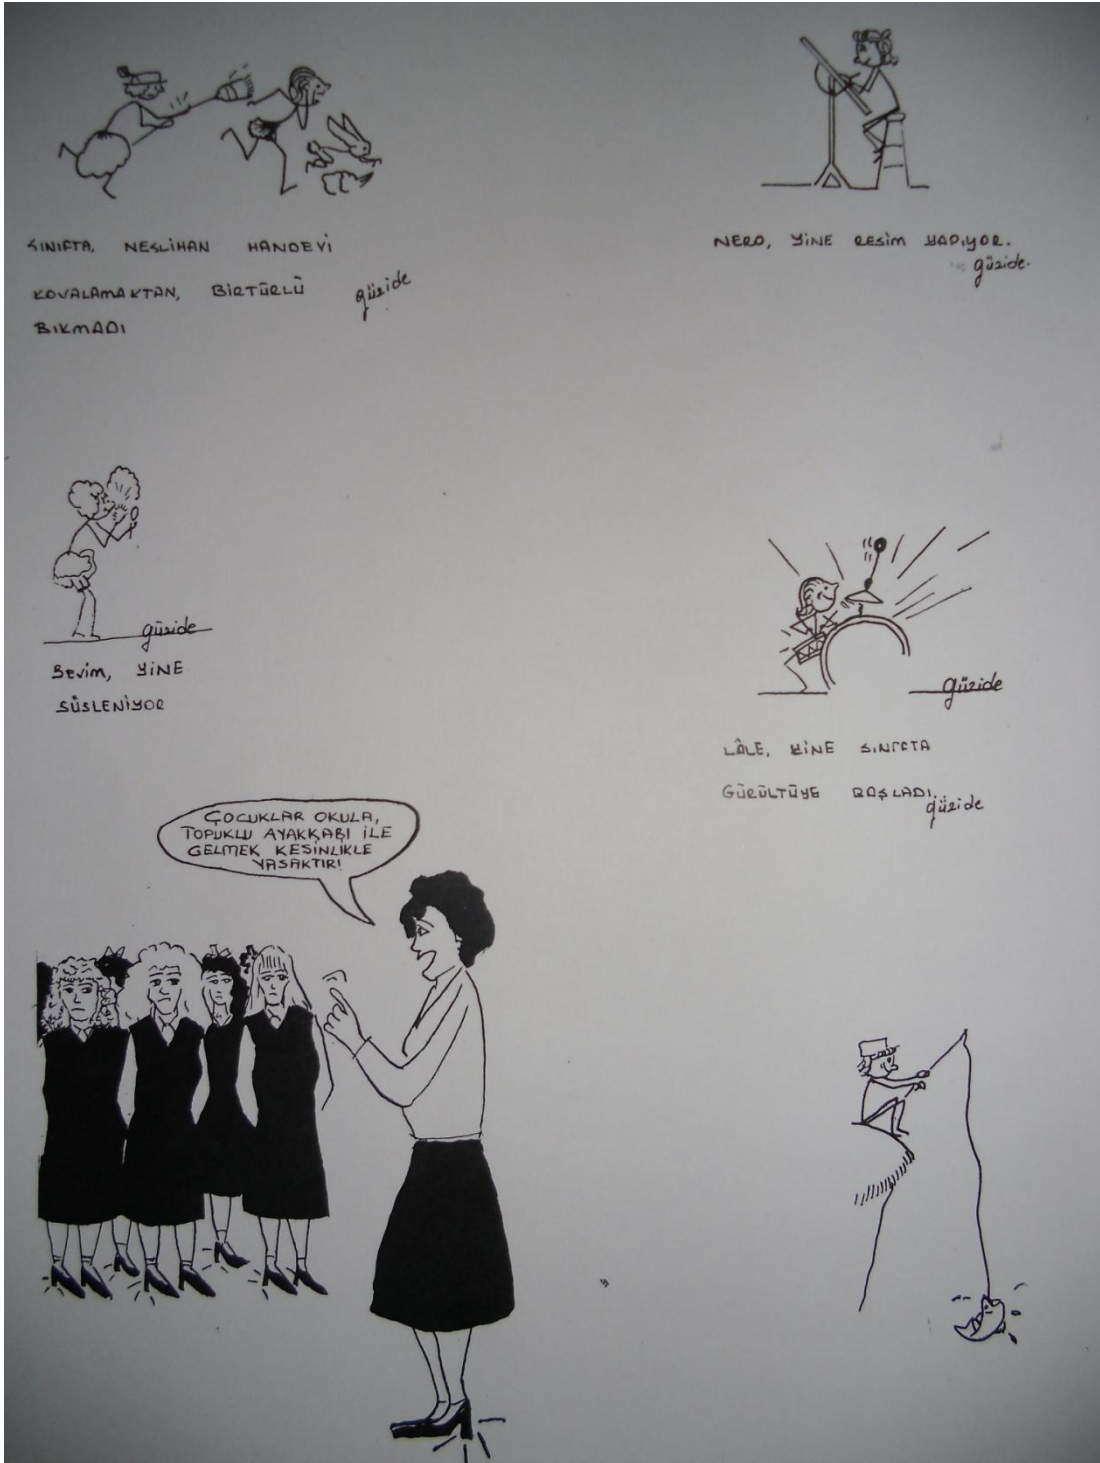 SINIFTA, NESLİHAN HANDEVİ
KOVALAMAKTAN, BİRTÜRLÜ
BIKMADI
güzide
NERO, YİNE RESİM YAPIYOR.
güzide.
güzide
Sevim, YİNE
SÜSLENİYOR
güzide
LÂLE, YİNE SINIFTA
GÜRÜLTÜYE BAŞLADI
güzide
ÇOCUKLAR OKULA,
TOPUKLU AYAKKABI İLE
GELMEK KESİNLİKLE
YASAKTIR!